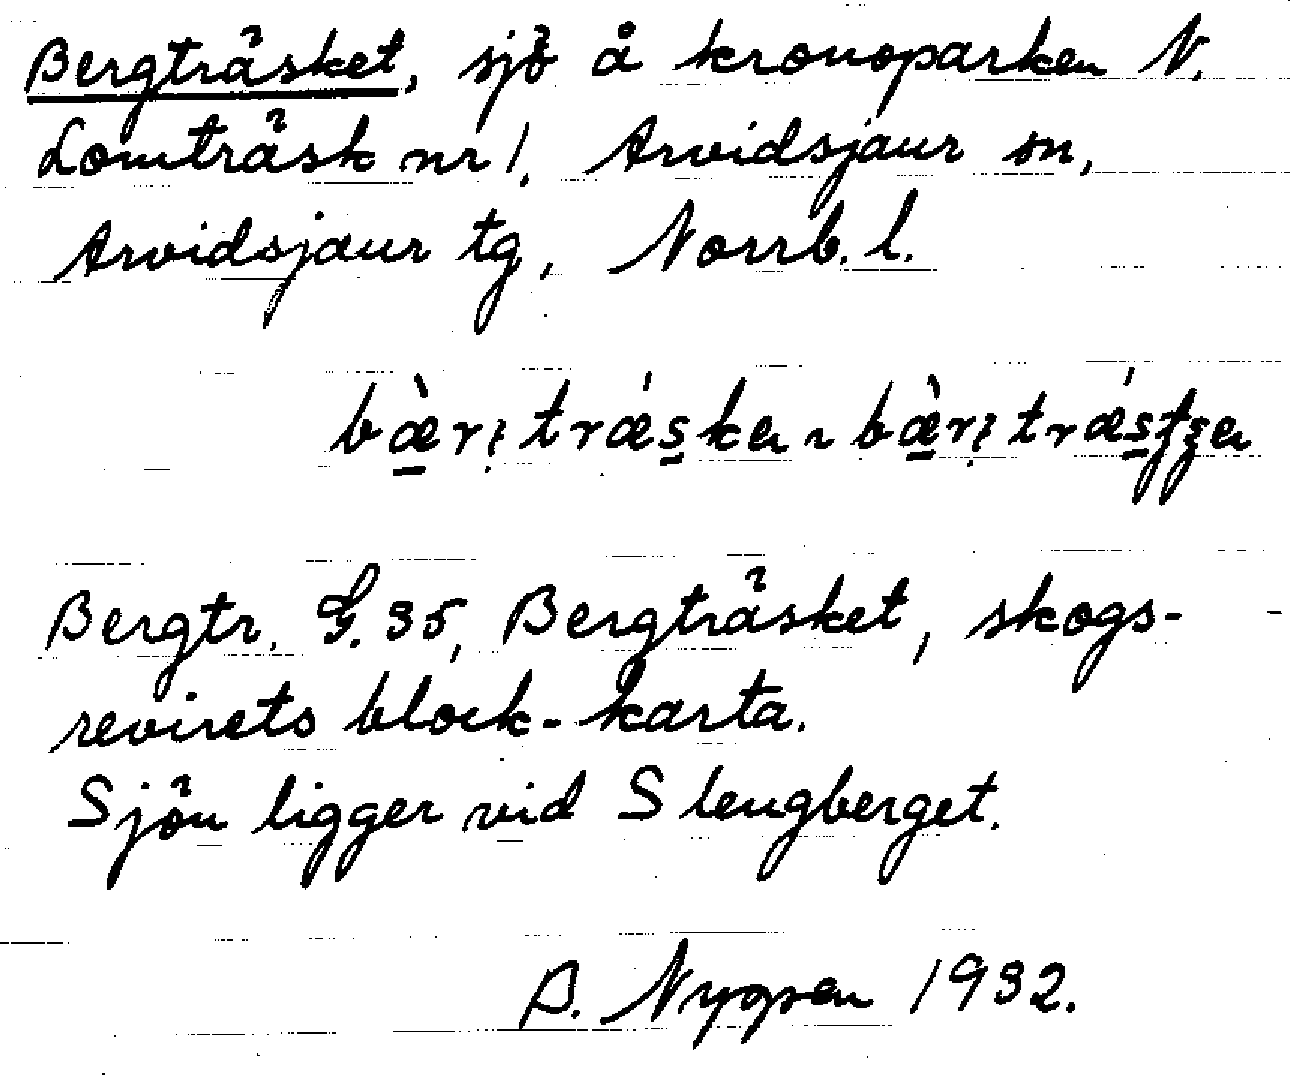 Bergträsket, sjö å kronoparken N.
Lomträsk nr 1, Arvidsjaur sn,
Arvidsjaur tg, Norrb. l.
Bergtr. G. 35, Bergträsket, skogs-
revirets block-karta.
Sjön ligger vid Slengberget.
B. 1932.